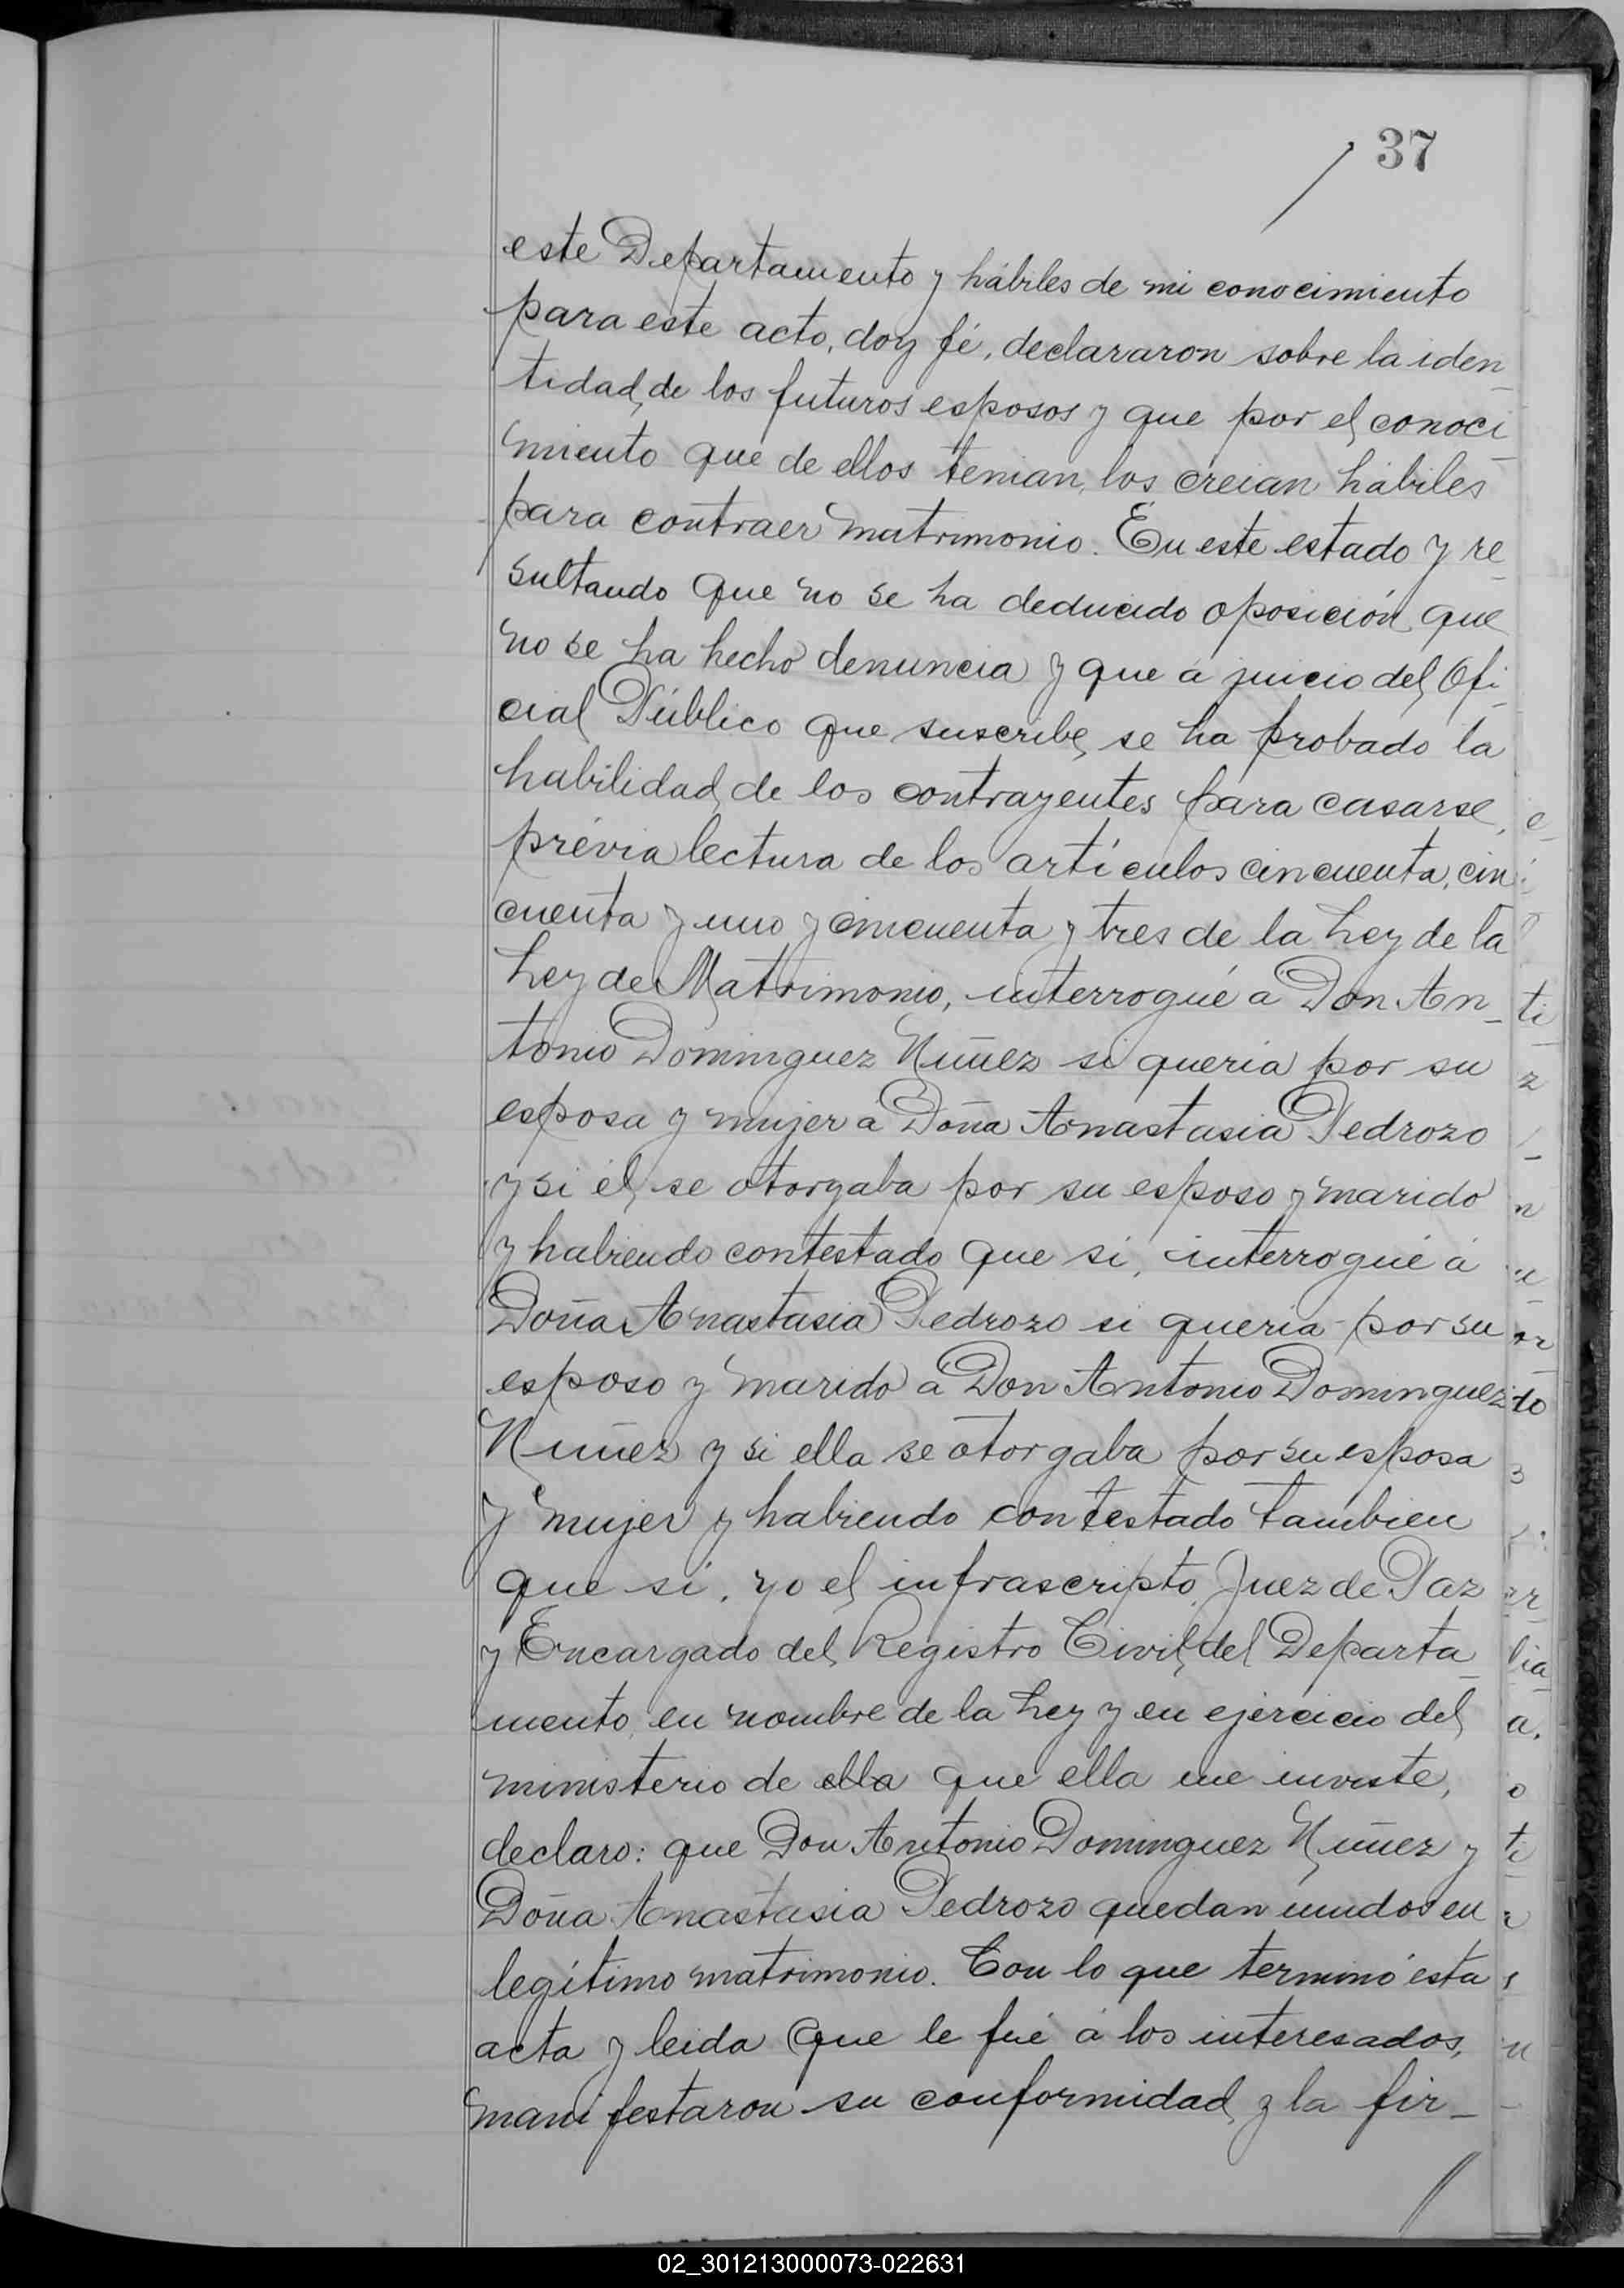 37
este Departamento y hábiles de mi conocimiento
para este acto, doy fé, declararon sobre la iden-
tidad de los futuros esposos y que por el conoci-
miento que de ellos tenian, los creian hábiles
para contraer matrimonio. En este estado y re-
sultando que no se ha deducido oposición que
no se ha hecho denuncia y que á juicio del Ofi-
cial Público que suscribe, se ha probado la
habilidad de los contrayentes para casarse,
prévia lectura de los artículos cincuenta, cin
cuenta y uno y cincuenta y tres de la Ley de la
Ley de Matrimonio, interrogué a Don An-
tonio Dominguez Nuñez si queria por su
esposa y mujer a Doña Anastasia Pedrozo
y si él se otorgaba por su esposo y marido
y habiendo contestado que si, interrogué á
Doña Anastasia Pedrozo si queria por su
esposo y marido a Don Antonio Dominguez
Nuñez y si ella se otorgaba por su esposa
y mujer y habiendo contestado tambien
que si, yo el infrascripto Juez de Paz
y Encargado del Registro Civil del Departa-
mento en nombre de la Ley y en ejercicio del
ministerio de ella que ella me inviste,
declaro: que Don Antonio Dominguez Nuñez y
Doña Anastasia Pedrozo quedan unidos en
legítimo matrimonio. Con lo que terminó esta
acta y leida que le fué á los interesados,
manifestaron su conformidad y la fir-
02_301213000073-022631